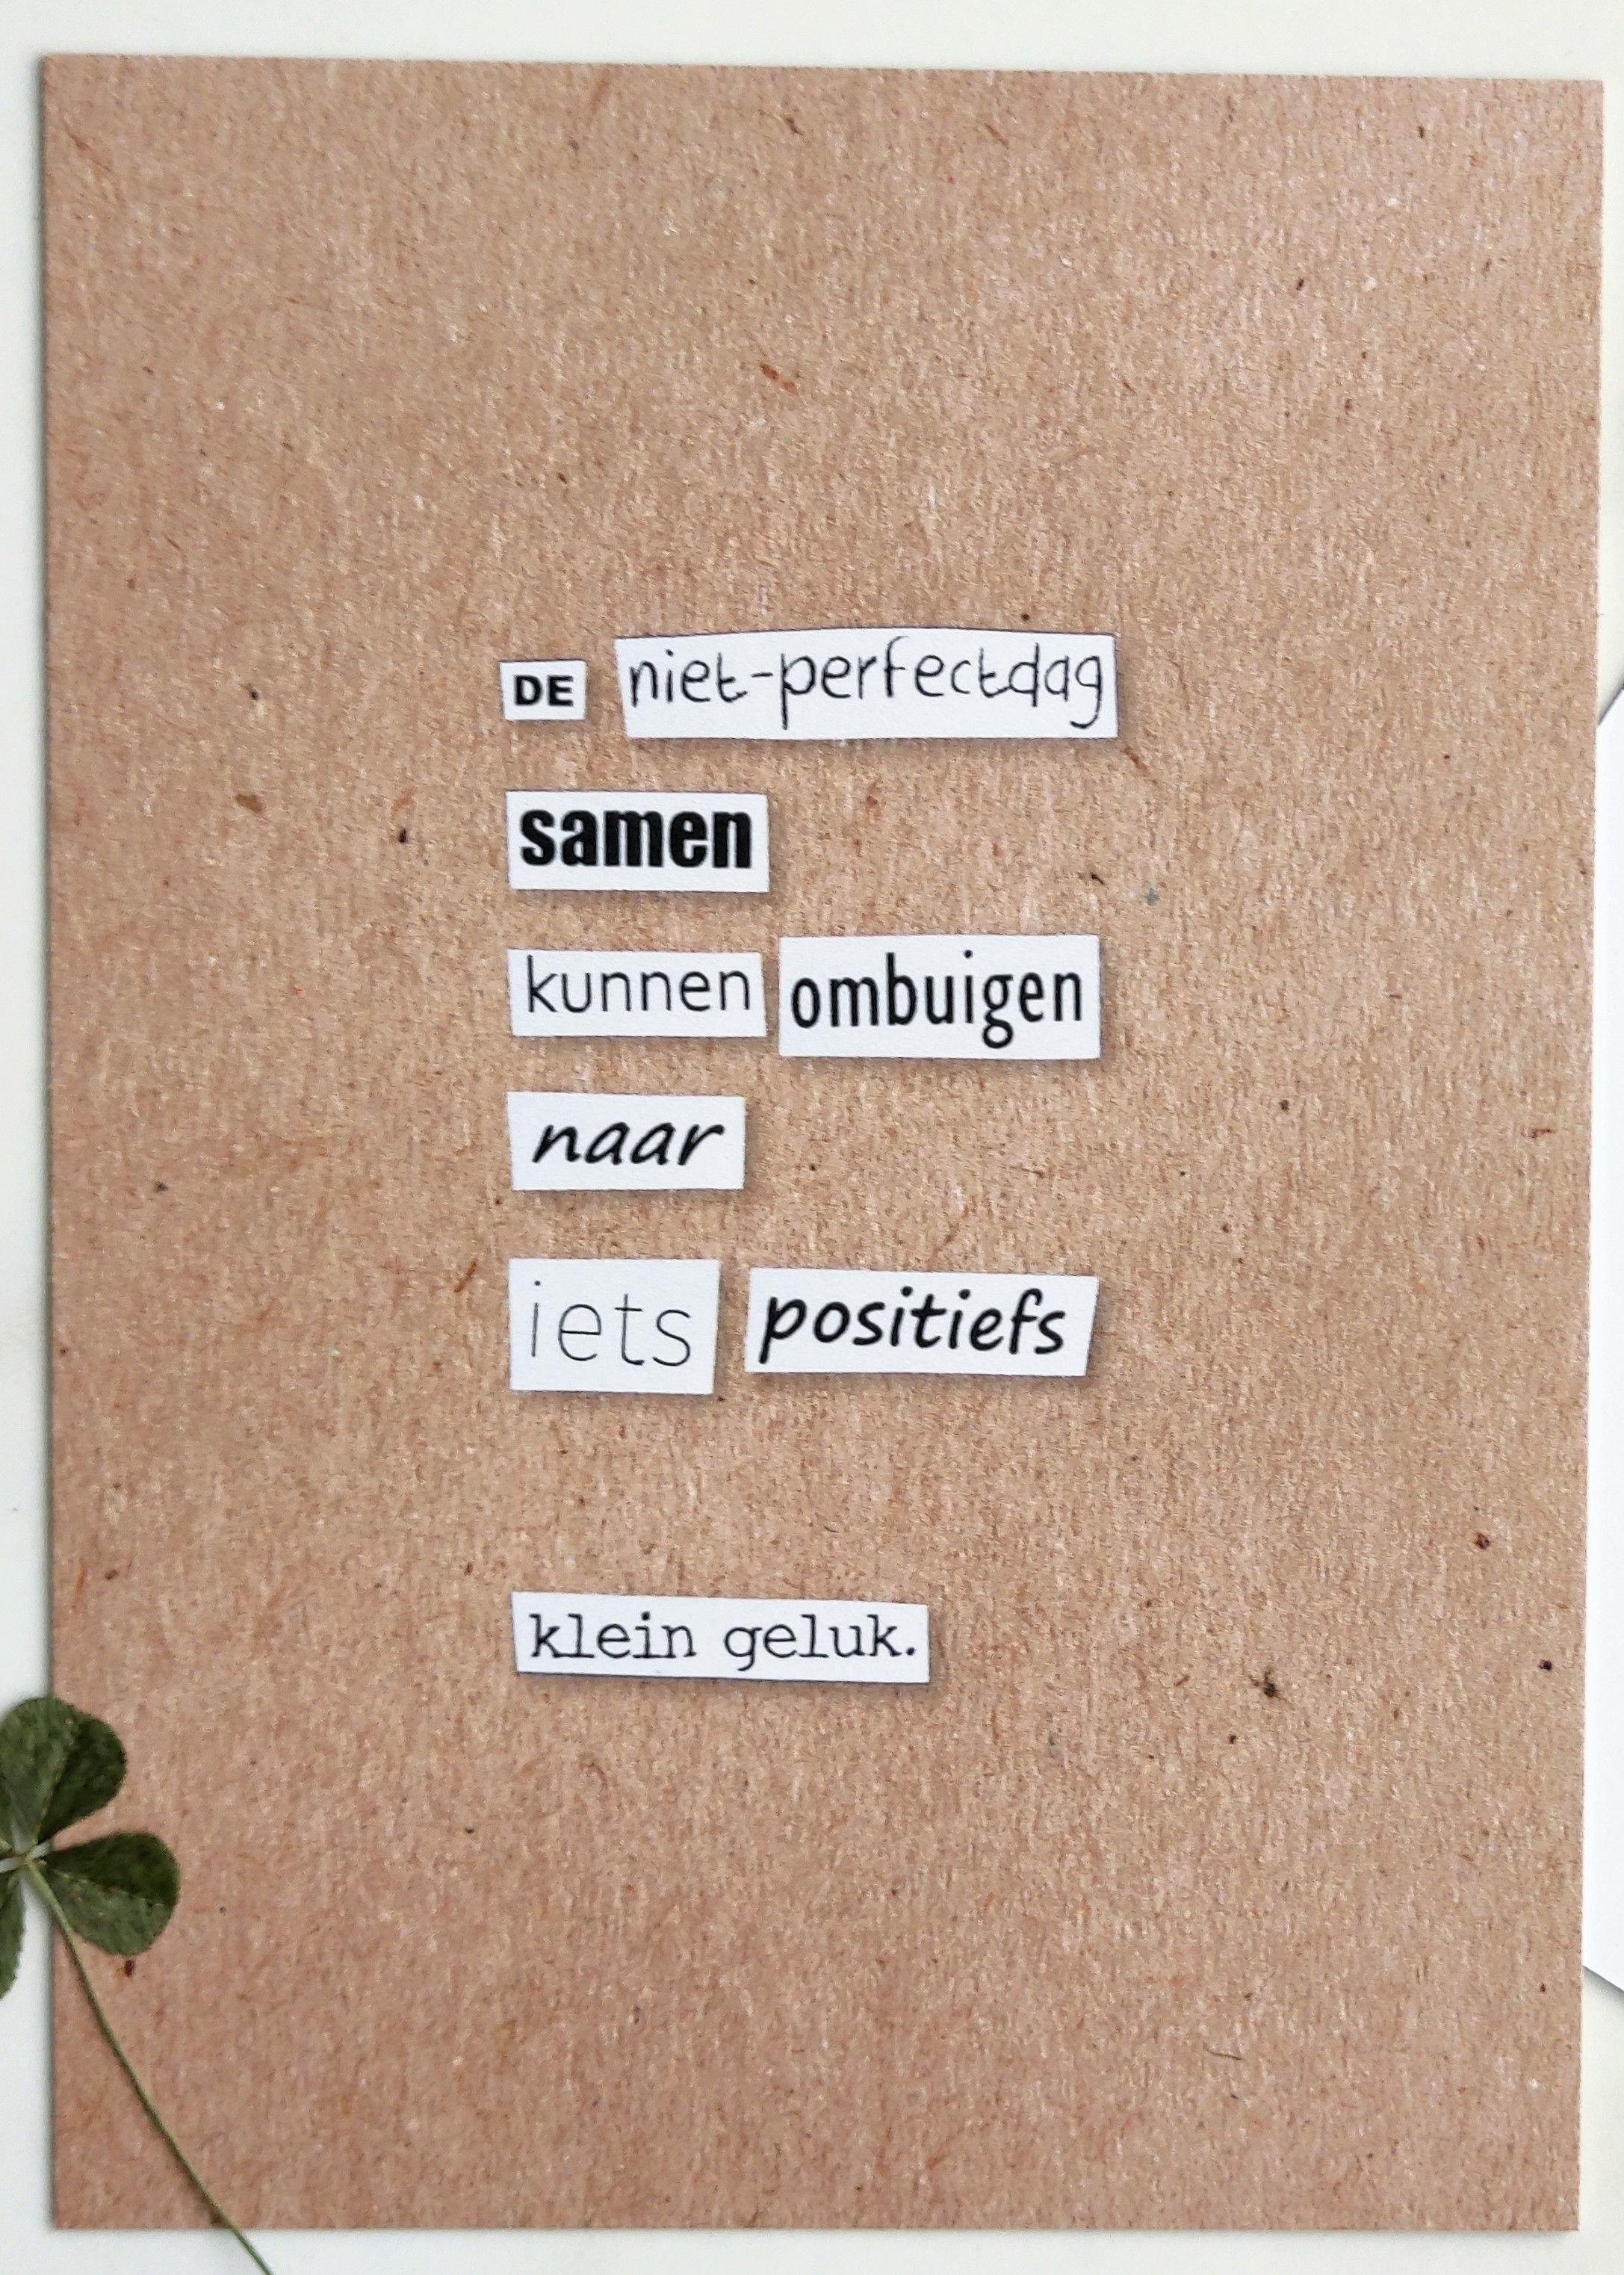 DE niet-perfectdag
samen
kunnen ombuigen
naar
iets positiefs
klein geluk.